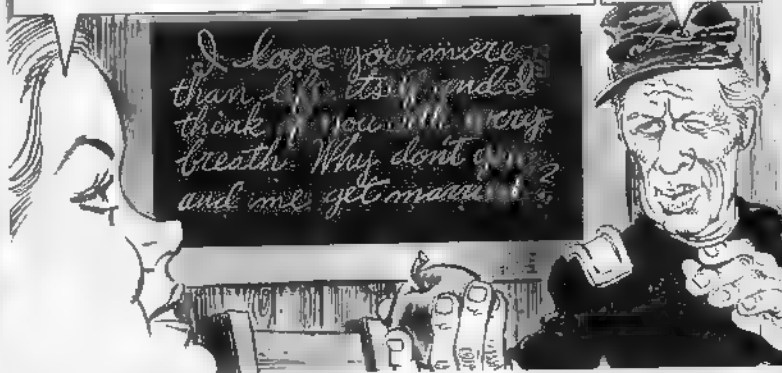 I love you more
than life itself and I
think of you with every
breath. Why don't you
and me get married?